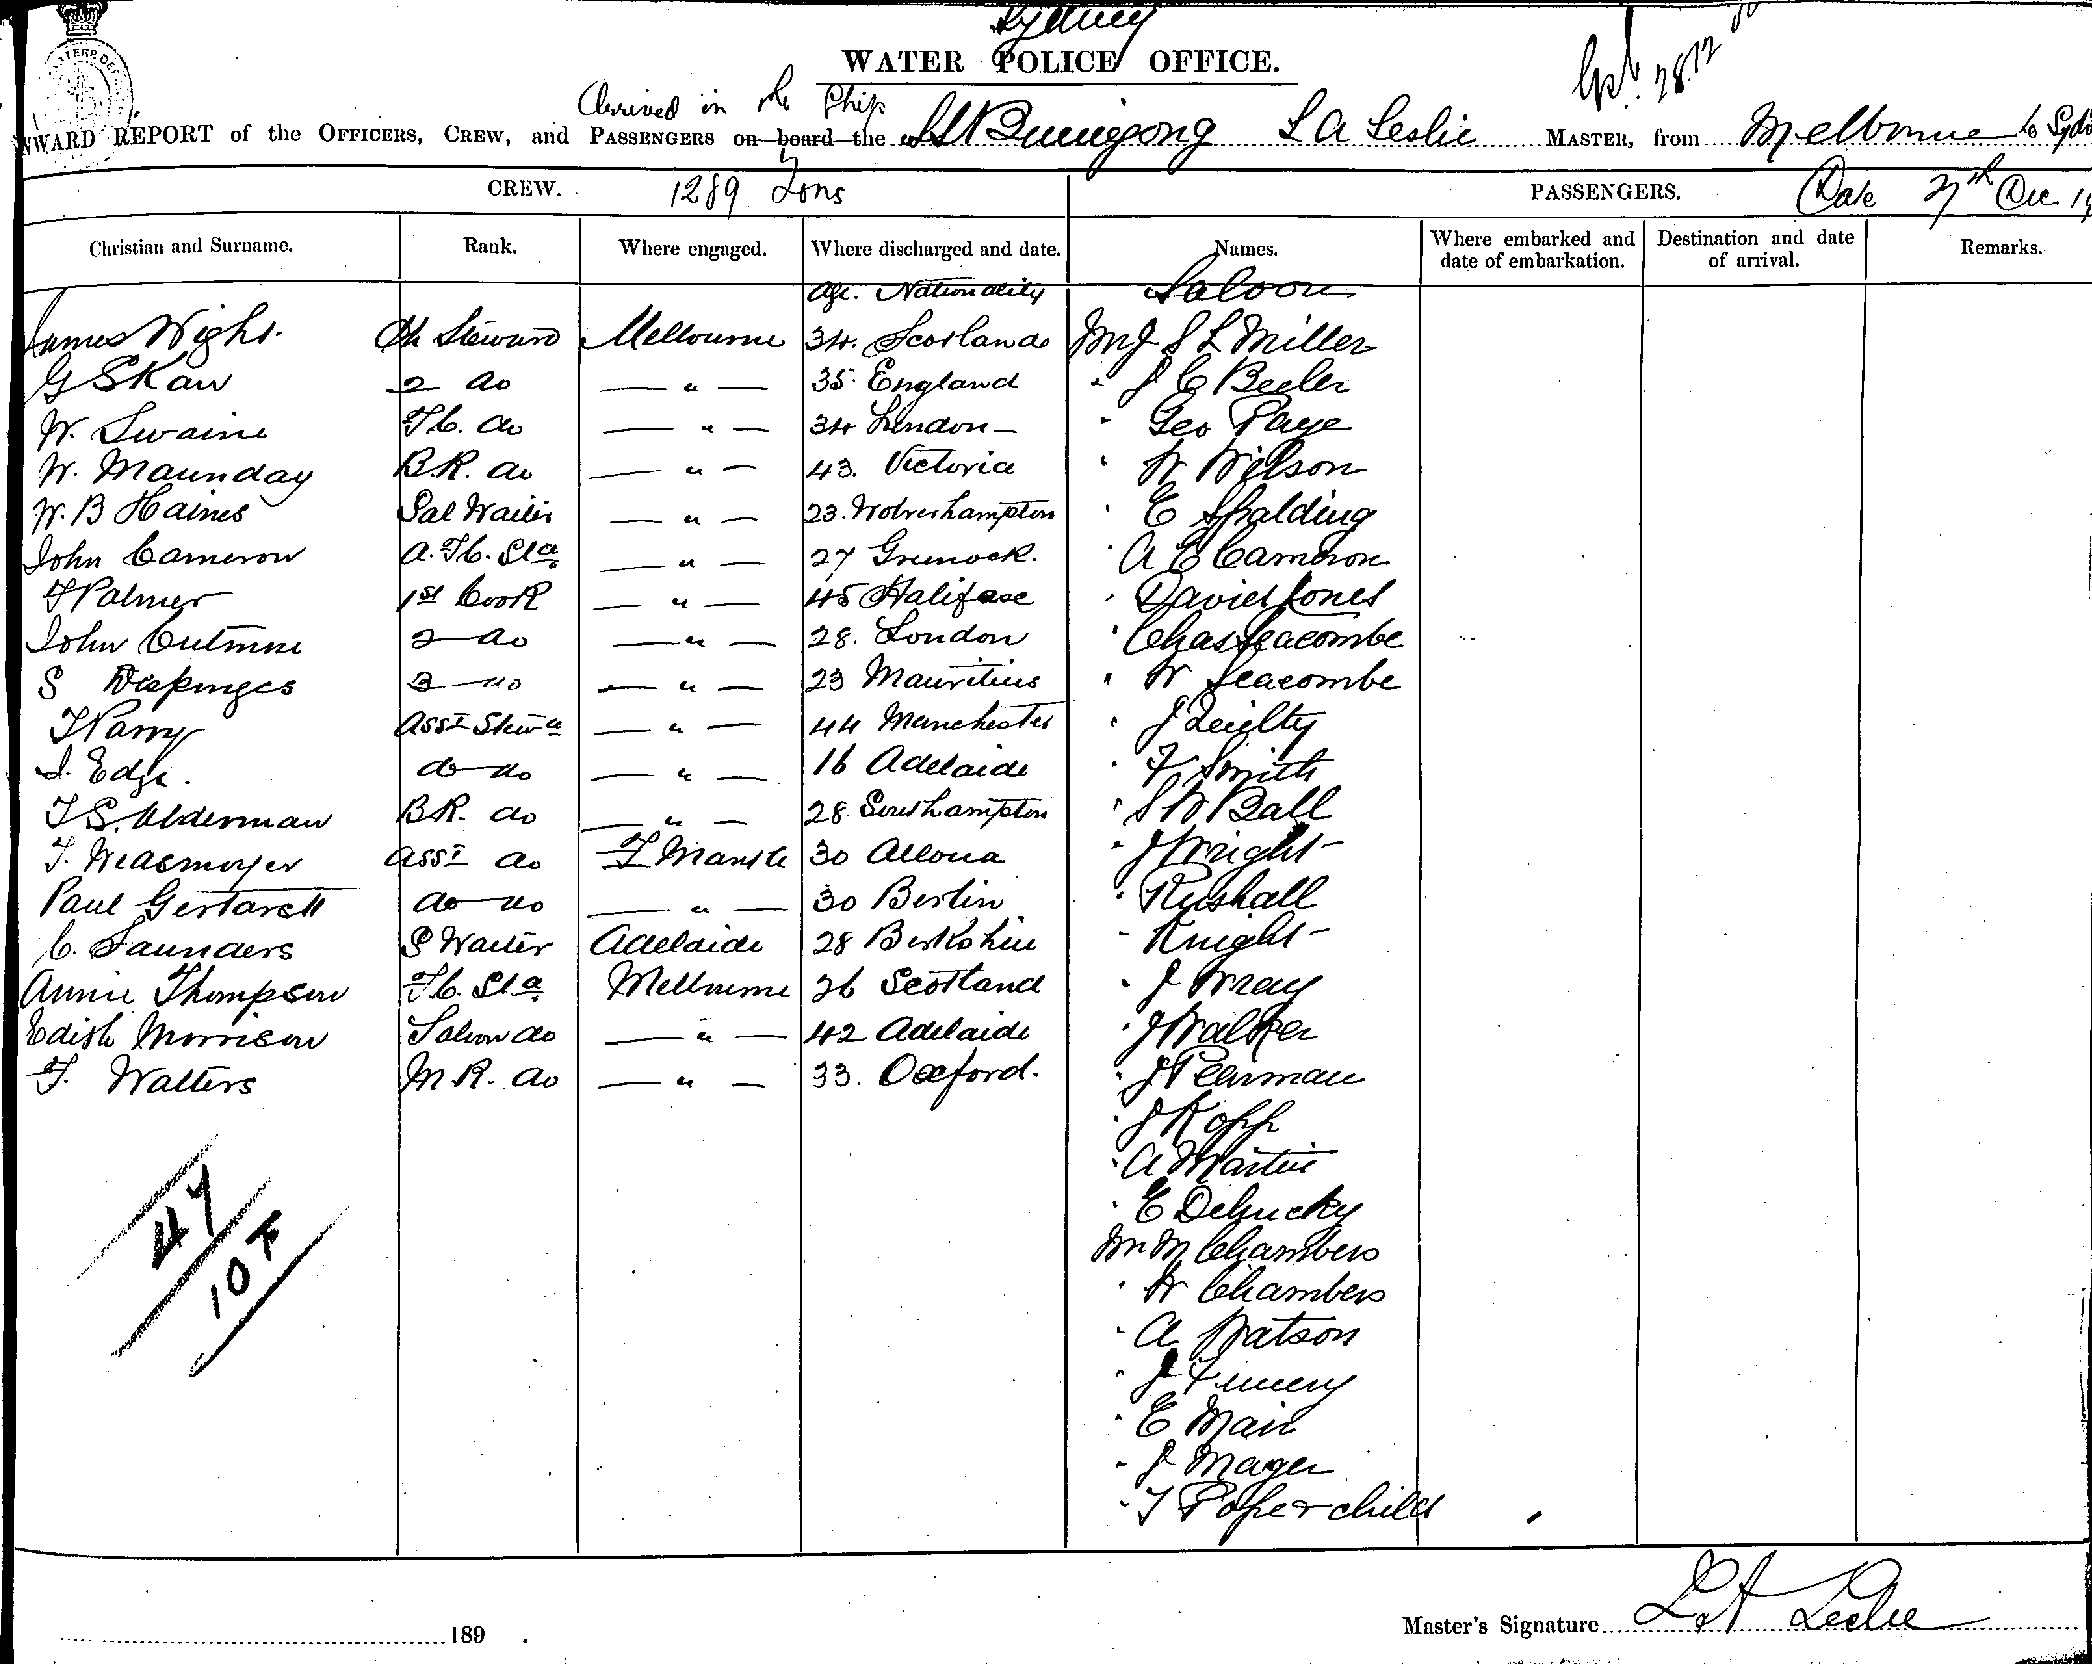 Sydney
WATER POLICE OFFICE.
Arrived in the Ship
INWARD REPORT of the OFFICERS, CREW, and PASSENGERS on board the SS Buninyong L A Leslie MASTER, from Melbourne to
CREW. 1289 Tons PASSENGERS. Date 27th Dec
Christian and Surname. Rank. Where engaged. Where discharged and date. Names. Where embarked and date of embarkation. Destination and date of arrival. Remarks.
Age. Nationality Saloon
James Wight. Ch Steward Melbourne 34. Scotland S L Miller
G Skaw 2 do — " — 35 England " J C Beeler
W. Swaine F.C. do — " — 34 London — " Geo Page
W. Maunday B.R. do — " — 43. Victoria " W Wilson
W. B Haines Sal Waiter — " — 23. Wolverhampton " E Spalding
John Cameron A. F.C. Stds — " — 27 Greenock. " A E Cameron
F Palmer 1st Cook — " — 45 Halifax " David Jones
John 2 do — " — 28. London " Chas Seacombe
S 3 do — " — 23 Mauritius " W Seacombe
T Parry Asst Stewd — " — 44 Manchester " J
I. Edge. do do — " — 16 Adelaide " F Smith
T S. Alderman B.R. do — " — 28 Southampton " S W Ball
F. Asst do F Mantle 30 " J Wright
Paul do do — " — 30 Berlin " Rushall
C. Saunders S Waiter Adelaide 28 Berkshire " Knight
Annie Thompson F.C. Stds Melbourne 26 Scotland " J May
Edith Morrison Saloon do — " — 42 Adelaide " J Walker
F. Walters M.R. do — " — 33. Oxford. " J Pearman
" J Kopp
" A Martin
" E
M Chambers
" W Chambers
" A Watson
" J
" E Main
" J Mager
" T Pope & child
47
10 F
189 .
Master's Signature L A Leslie